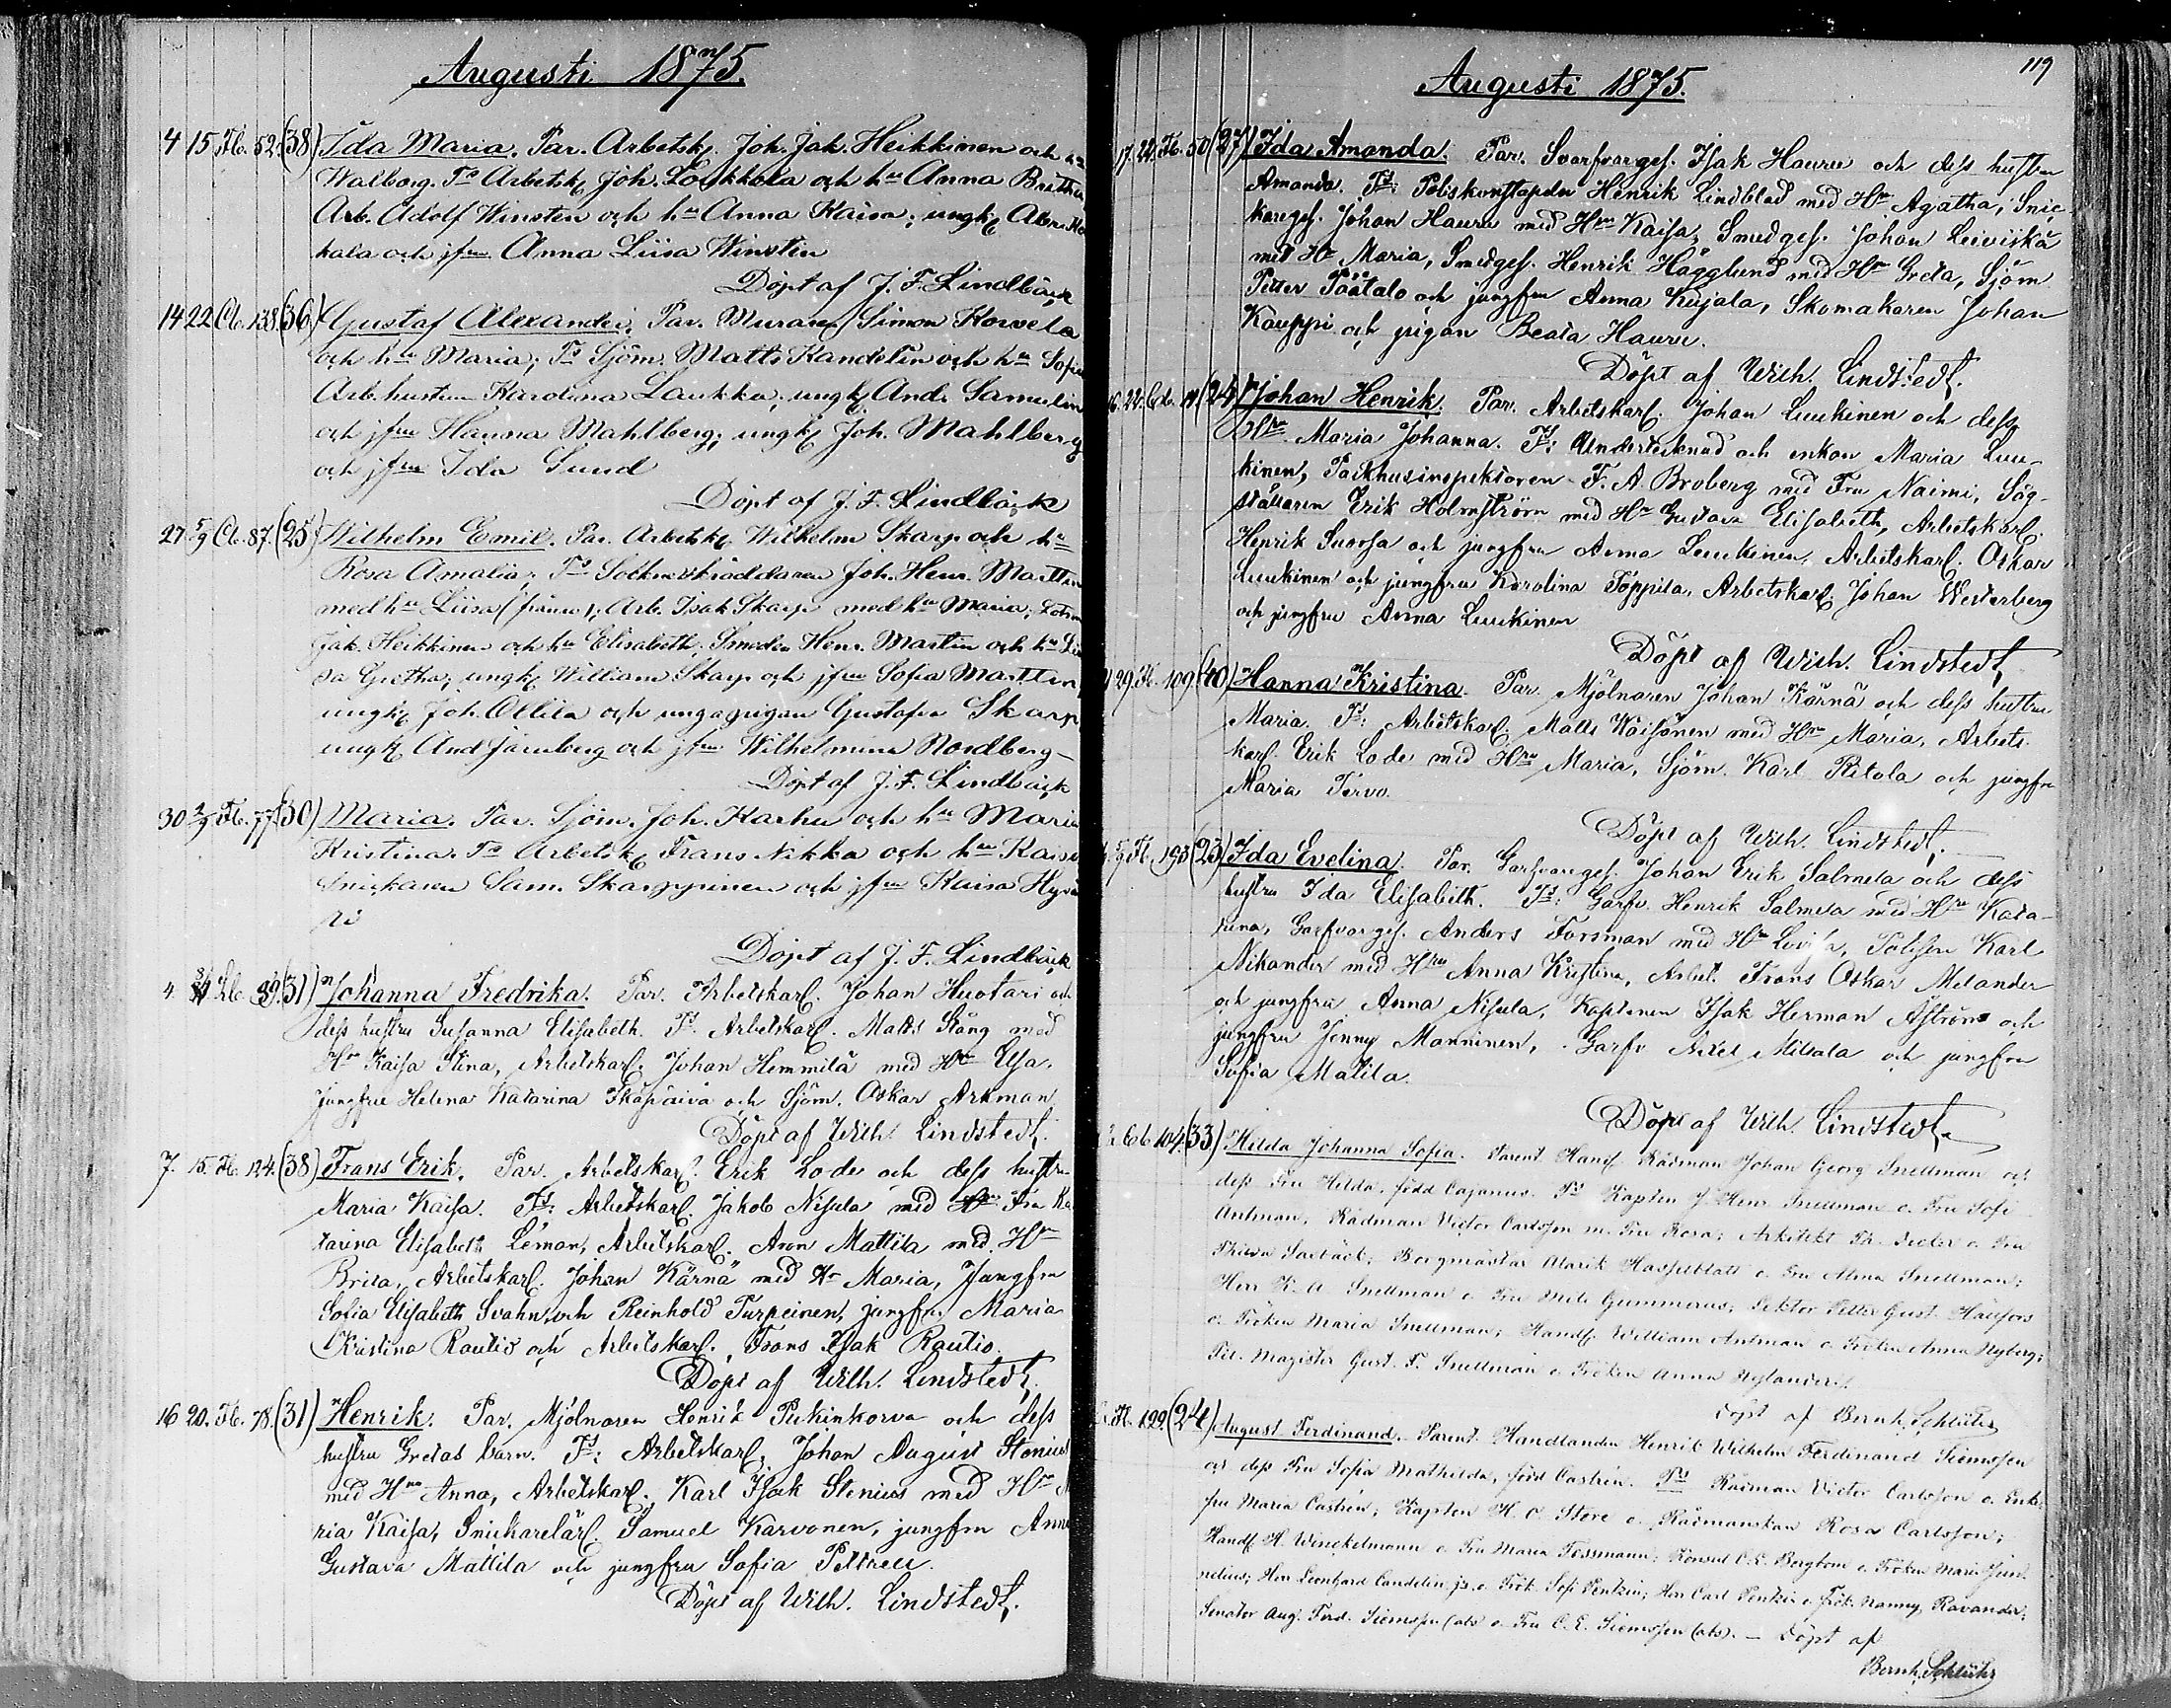 Augusti 1875.
4 15 Fb. 52. (38) Ida Maria. Par. Arbetsk. Joh. Jak. Heikkinen och hu
Walborg. Ts Arbetsk. Joh. Loukkola och hu Anna Britha
Arb. Adolf Winstén och hu Anna Kaisa; ungk.
kala och jfru Anna Liisa Winstén
Döpt af J. F. Lindbäck
14 22 Cb. 138. (36) Gustaf Alexander, Par. Muraren Simon Korvela
och hu Maria; Ts Sjöm. Matts Kandelin och hu Sofia
Arb. hustrun Karolina Laukka; ungk. And. Samulin
och jfru Hanna Mahlberg; ungk. Joh. Mahlberg
och jfru Ida Sund
Döpt af J. F. Lindbäck
27 5/9 Cb. 87. (25) Wilhelm Emil. Par. Arbetsk. Wilhelm Skarp och hu
Rosa Amalia; Ts Joh. Henr. Martin
med hu Liisa, Arb. Isak Skarp med hu Maria; Lots
Jak. Heikkinen och hu Elisabeth; Smeden Henr. Martin och hu Lii
sa Gretha; ungk. William Skarp och jfru Sofia Martin,
ungk. Joh. Ollila och unga pigan Gustafva Skarp
ungk. And Järnberg och jfru Wilhelmina Nordberg –
Döpt af J. F. Lindbäck
30 2/9 Fb. 77. (30) Maria. Par. Sjöm. Joh. Karhu och hu Maria
Kristina. Ts Arbetsk. Frans Nikka och hu Kaisa
Snickaren Sam. Skarppinen och jfru Kaisa Hyvä
ri
Döpt af J. F. Lindbäck
4. Lb. 39. (31) Johanna Fredrika. Par. Arbetskarl. Johan Huotari och
dess hustru Susanna Elisabeth. Ts. Arbetskarl. Matts Stång med
Hu Kaisa Stina, Arbetskarl. Johan Hemmilä med Hu Elsa.
jungfru Helena Katarina Iskäpäivä och Sjöm. Oskar Arkman
Döpt af Wilh. Lindstedt.
7. 15. Fb. 124. (38) Frans Erik. Par. Arbetskarl. Erik Lode och dess hustru
Maria Kaisa. Ts: Arbetskarl. Jakob Nisula med Fru Ka
tarina Elisabeth Léman, Arbetskarl. Aron Mattila med Hu
Brita, Arbetskarl. Johan Kärnä med Hu Maria, Jungfru
Sofia Elisabeth Svahn och Reinhold Turpeinen, jungfru Maria
Kristina Rautio och Arbetskarl. Frans Isak Rautio.
Döpt af Wilh. Lindstedt.
16 20. Fb. 78. (31) Henrik. Par. Mjölnaren Henrik Pukinkorva och dess
hustru Gretas barn. Ts: Arbetskarl. Johan August Stenius
med Hru Anna, Arbetskarl. Karl Isak Stenius med Hru Ma
ria Kaisa, Snickarelärl. Samuel Karvonen, jungfru Anna
Gustava Mattila och jungfru Sofia Pettreu.
Döpt af Wilh. Lindstedt.
119
Augusti 1875.
17. 22. Fb. 50 (27) Ida Amanda. Par. Svarfvarges. Isak Hauru och dess hustru
Amanda. Ts: Poliskonstapeln Henrik Lindblad med Hu Agatha, Snic
kareges. Johan Hauru med Hru Kaisa, Smedges. Johan Leiviskä
med Hu Maria, Smedges. Henrik Hägglund med Hu Greta, Sjöm
Petter Päätalo och jungfru Anna Kujala, Skomakaren Johan
Kauppi och pigan Beata Hauru.
Döpt af Wilh. Lindstedt.
16. 22. (24) Johan Henrik. Par. Arbetskarl. Johan Luukinen och dess
Hru Maria Johanna. Ts: Undertecknad och enkan Maria Luu-
kinen, Packhusinspektoren F. A. Broberg med Fru Naimi, Såg-
ställaren Erik Holmström med Hu Gustava Elisabeth, Arbetskarl.
Henrik Suorsa och jungfru Anna Luukinen, Arbetskarl. Oskar
Luukinen och jungfru Karolina Toppila, Arbetskarl. Johan Westerberg
och jungfru Anna Luukinen
Döpt af Wilh. Lindstedt.
29. Fb. 109. (40) Hanna Kristina. Par. Mjölnaren Johan Kärnä och dess hustru
Maria. Ts: Arbetskarl. Matts Väisänen med Hru Maria, Arbets-
karl. Erik Lode med Hru Maria, Sjöm. Karl Ritola och jungfru
Maria Tervo.
Döpt af Wilh. Lindstedt.
5/9 Fb. 193 (23) Ida Evelina. Par. Garfvareges. Johan Erik Salmela och dess
hustru Ida Elisabeth. Ts: Garfv. Henrik Salmela med Hru Kata-
rina, Garfvarges. Anders Forsman med Hu Lovisa, Polisen Karl
Nikander med Hru Anna Kristina, Arbet. Frans Oskar Melander
och jungfru Anna Nisula, Kaptenen Isak Herman Åström och
jungfru Jenny Manninen, Garfv Axel Mikkola och jungfru
Sofia Matila.
Döpt af Wilh. Lindstedt.
Cb 104. (33) Hilda Johanna Sofia. Parent. Handl. Rådman Johan Georg Snellman och
dess Fru Hilda, född Cajanus. Ts Kapten J. Henr. Snellman o. Fru Sofi
Antman, Rådman Victor Carlsson m. Fru Rosa; Arkitekt Th. Decker o. Fru
Borgmästar Alarik Hasselblatt o. Fru Alma Snellman;
Herr K. A. Snellman o. Fru Gummerus; Lektor Petter Gust. Hällfors
o. Fröken Maria Snellman; Handl. William Antman o. Fröken Anna Nyberg;
Fil. Magister Gust. F. Snellman o. Fröken Anna Nylander.
Döpt af Bernh. Schlüter
Fb. 122. (24) August Ferdinand. Parent. Handlanden Henrik Wilhelm Ferdinand Siemssen
och dess Fru Sofia Mathilda, född Castrén. Ts Rådman Victor Carlsson o. Enke-
fru Maria Castrén; Kapten H. C. Støre o. Rådmanskan Rosa Carlsson;
Handl. H. Winckelmann o. Fru Maria Tessmann; Konsul C. R. Bergbom o. Fröken Maria
nelius; Herr Leonhard Candelin jr. o. Frök. Sofi Pentzin; Herr Carl Pentzin o. Frök. Nanny Ravander;
Senator Aug. Ferd. Siemssen (abs) o. Fru C. E. Siemssen (abs). – Döpt af
Bernh. Schlüter